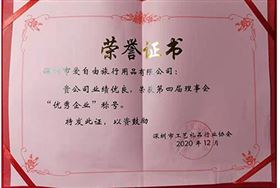 荣誉证书
深圳市爱自由旅行用品有限公司：
贵公司业绩优良，荣获第四届理事会
“优秀企业”称号。
特发此证，以资鼓励
深圳市工艺礼品行业协会
2020年12月